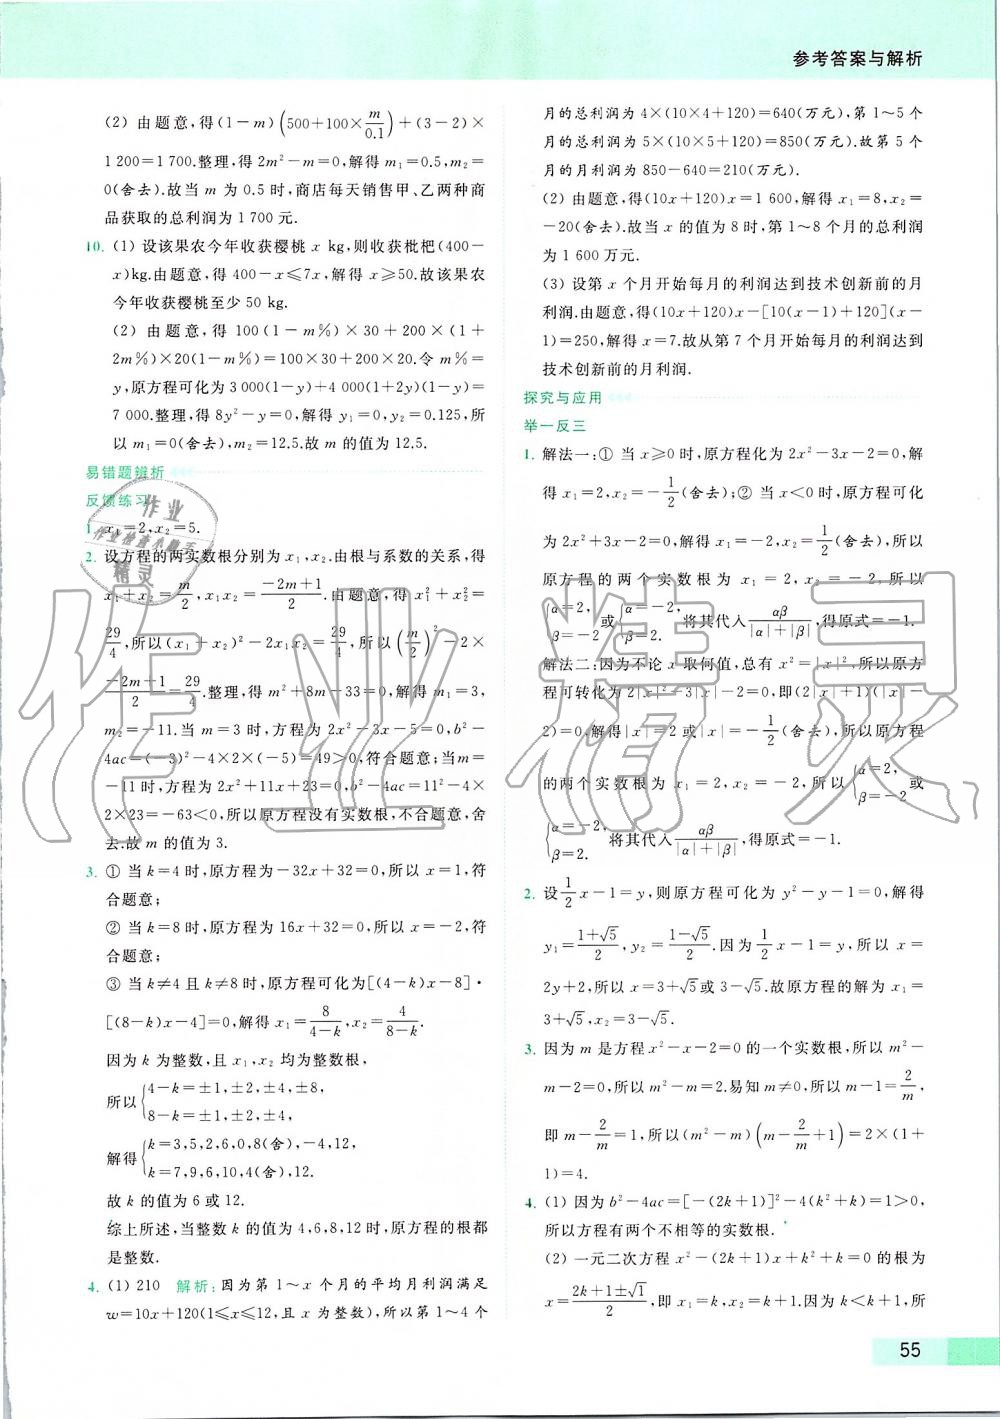 参考答案与解析
(2) 由题意,得(1-m)(500+100×m/0.1)+(3-2)×
1 200=1 700.整理,得 2m²-m=0,解得 m₁=0.5,m₂=
0(舍去).故当 m 为 0.5 时,商店每天销售甲、乙两种商
品获取的总利润为 1 700 元.
10. (1) 设该果农今年收获樱桃 x kg,则收获枇杷(400-
x)kg.由题意,得 400-x≤7x,解得 x≥50.故该果农
今年收获樱桃至少 50 kg.
(2) 由题意,得 100(1-m%)×30+200×(1+
2m%)×20(1-m%)=100×30+200×20.令 m%=
y,原方程可化为 3 000(1-y)+4 000(1+2y)(1-y)=
7 000.整理,得 8y²-y=0,解得 y₁=0,y₂=0.125,所
以 m₁=0(舍去),m₂=12.5.故 m 的值为 12.5.
易错题辨析
反馈练习
1. x₁=2,x₂=5.
2. 设方程的两实数根分别为 x₁,x₂.由根与系数的关系,得
x₁+x₂=m/2,x₁x₂=(-2m+1)/2.由题意,得 x₁²+x₂²=
29/4,所以(x₁+x₂)²-2x₁x₂=29/4,所以(m/2)²-2×
(-2m+1)/2=29/4.整理,得 m²+8m-33=0,解得 m₁=3,
m₂=-11.当 m=3 时,方程为 2x²-3x-5=0,b²-
4ac=(-3)²-4×2×(-5)=49>0,符合题意;当m=
-11 时,方程为 2x²+11x+23=0,b²-4ac=11²-4×
2×23=-63<0,所以原方程没有实数根,不合题意,舍
去.故 m 的值为 3.
3. ① 当 k=4 时,原方程为-32x+32=0,所以 x=1,符
合题意;
② 当 k=8 时,原方程为 16x+32=0,所以 x=-2,符
合题意;
③ 当 k≠4 且 k≠8 时,原方程可化为[(4-k)x-8]·
[(8-k)x-4]=0,解得 x₁=8/(4-k),x₂=4/(8-k).
因为 k 为整数,且 x₁,x₂ 均为整数根,
所以{4-k=±1,±2,±4,±8,
8-k=±1,±2,±4,
解得{k=3,5,2,6,0,8(舍),-4,12,
k=7,9,6,10,4(舍),12.
故 k 的值为 6 或 12.
综上所述,当整数 k 的值为 4,6,8,12 时,原方程的根都
是整数.
4. (1) 210 解析:因为第 1～x 个月的平均月利润满足
w=10x+120(1≤x≤12,且 x 为整数),所以第 1～4 个
月的总利润为 4×(10×4+120)=640(万元),第 1～5 个
月的总利润为 5×(10×5+120)=850(万元).故第 5 个
月的月利润为 850-640=210(万元).
(2) 由题意,得(10x+120)x=1 600,解得 x₁=8,x₂=
-20(舍去).故当 x 的值为 8 时,第 1～8 个月的总利润
为 1 600 万元.
(3) 设第 x 个月开始每月的利润达到技术创新前的月
利润.由题意,得(10x+120)x-[10(x-1)+120](x-
1)=250,解得 x=7.故从第 7 个月开始每月的利润达到
技术创新前的月利润.
探究与应用
举一反三
1. 解法一:① 当 x≥0 时,原方程化为 2x²-3x-2=0,解
得 x₁=2,x₂=-1/2(舍去);② 当 x<0 时,原方程可化
为 2x²+3x-2=0,解得 x₁=-2,x₂=1/2(舍去),所以
原方程的两个实数根为 x₁=2,x₂=-2,所以
{α=2, β=-2 或{α=-2, β=2. 将其代入αβ/(|α|+|β|),得原式=-1.
解法二:因为不论 x 取何值,总有 x²=|x|²,所以原方
程可转化为 2|x|²-3|x|-2=0,即(2|x|+1)(|x|-
2)=0,解得|x|=2 或|x|=-1/2(舍去),所以原方程
的两个实数根为 x₁=2,x₂=-2,所以{α=2, β=-2 或
{α=-2, β=2. 将其代入αβ/(|α|+|β|),得原式=-1.
2. 设1/2x-1=y,则原方程可化为 y²-y-1=0,解得
y₁=(1+√5)/2,y₂=(1-√5)/2.因为1/2x-1=y,所以 x=
2y+2,所以 x=3+√5或 3-√5.故原方程的解为 x₁=
3+√5,x₂=3-√5.
3. 因为 m 是方程 x²-x-2=0 的一个实数根,所以 m²-
m-2=0,所以 m²-m=2.易知 m≠0,所以 m-1=2/m,
即 m-2/m=1,所以(m²-m)(m-2/m+1)=2×(1+
1)=4.
4. (1) 因为 b²-4ac=[-(2k+1)]²-4(k²+k)=1>0,
所以方程有两个不相等的实数根.
(2) 一元二次方程 x²-(2k+1)x+k²+k=0 的根为
x=(2k+1±√1)/2,即 x₁=k,x₂=k+1.因为 k<k+1,所
55
作业精灵
作业
作业检查小助手
精灵